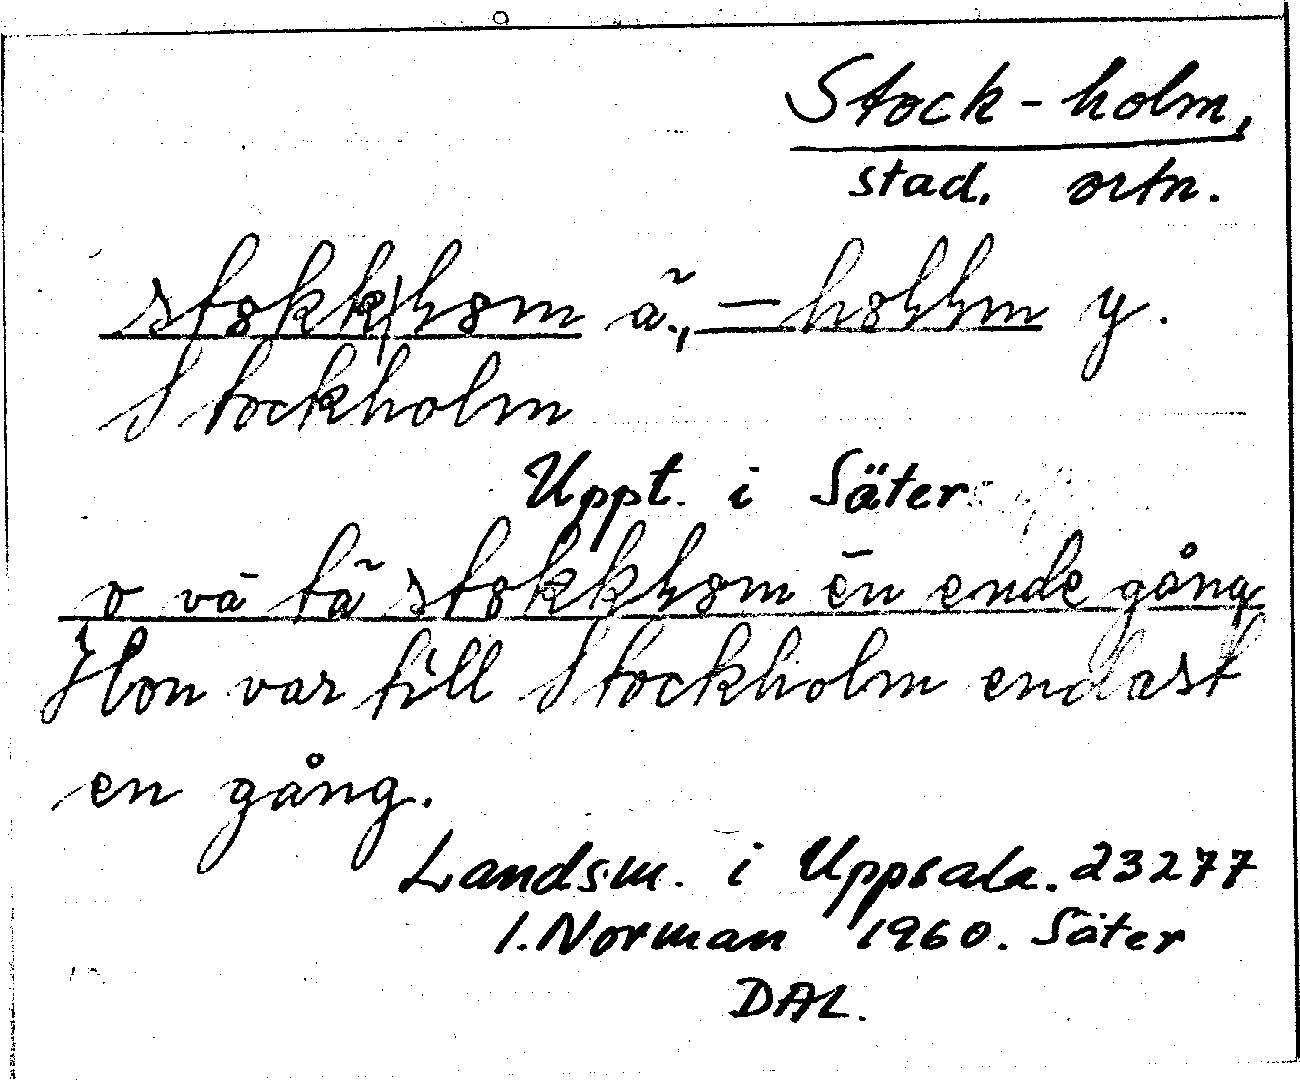 Stock-holm,
stad. ortn.
stokk|hom ä., =hollm y.
Stockholm
Uppt. i Säter
o vā tä̃ stokkhom ēn ende gång
Hon var till Stockholm endast
en gång.
Landsm. i Uppsala. 23277
I. Norman 1960. Säter
DAL.